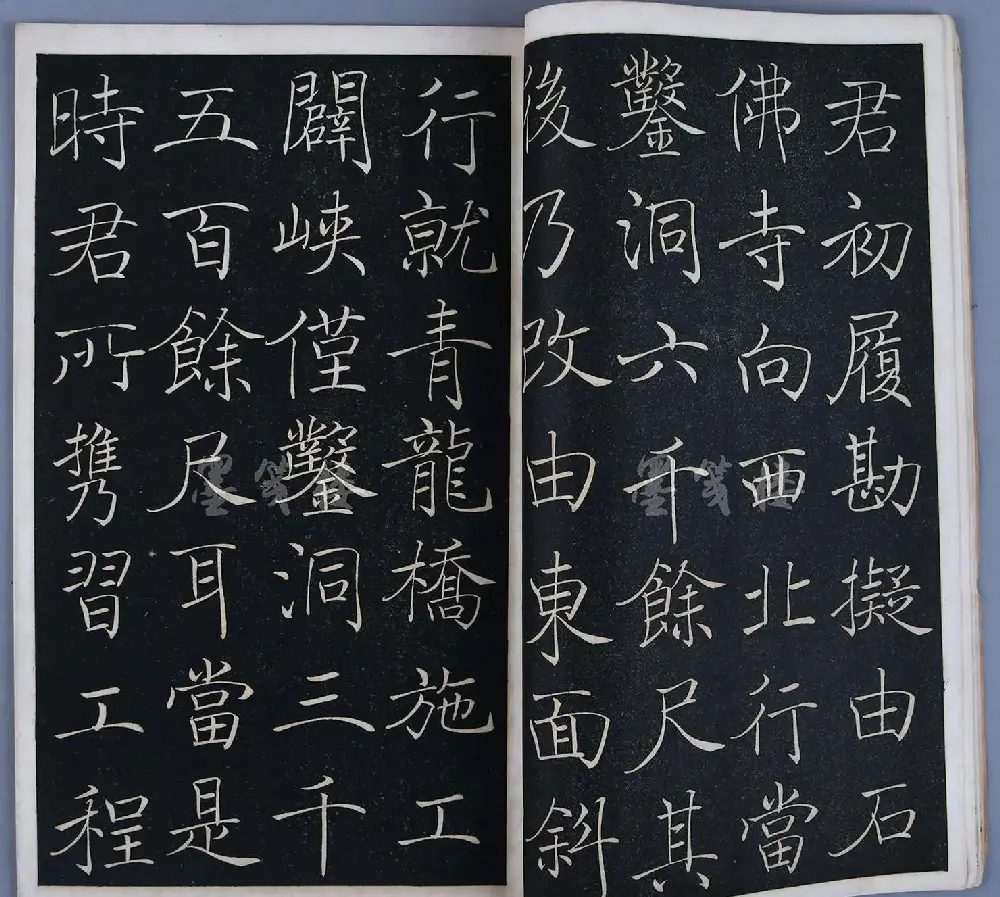 君初履勘擬由石
佛寺向西北行當
鑿洞六千餘尺其
後乃改由東面斜
行就青龍橋施工
闢峽僅鑿洞三千
五百餘尺耳當是
時君所携習工程